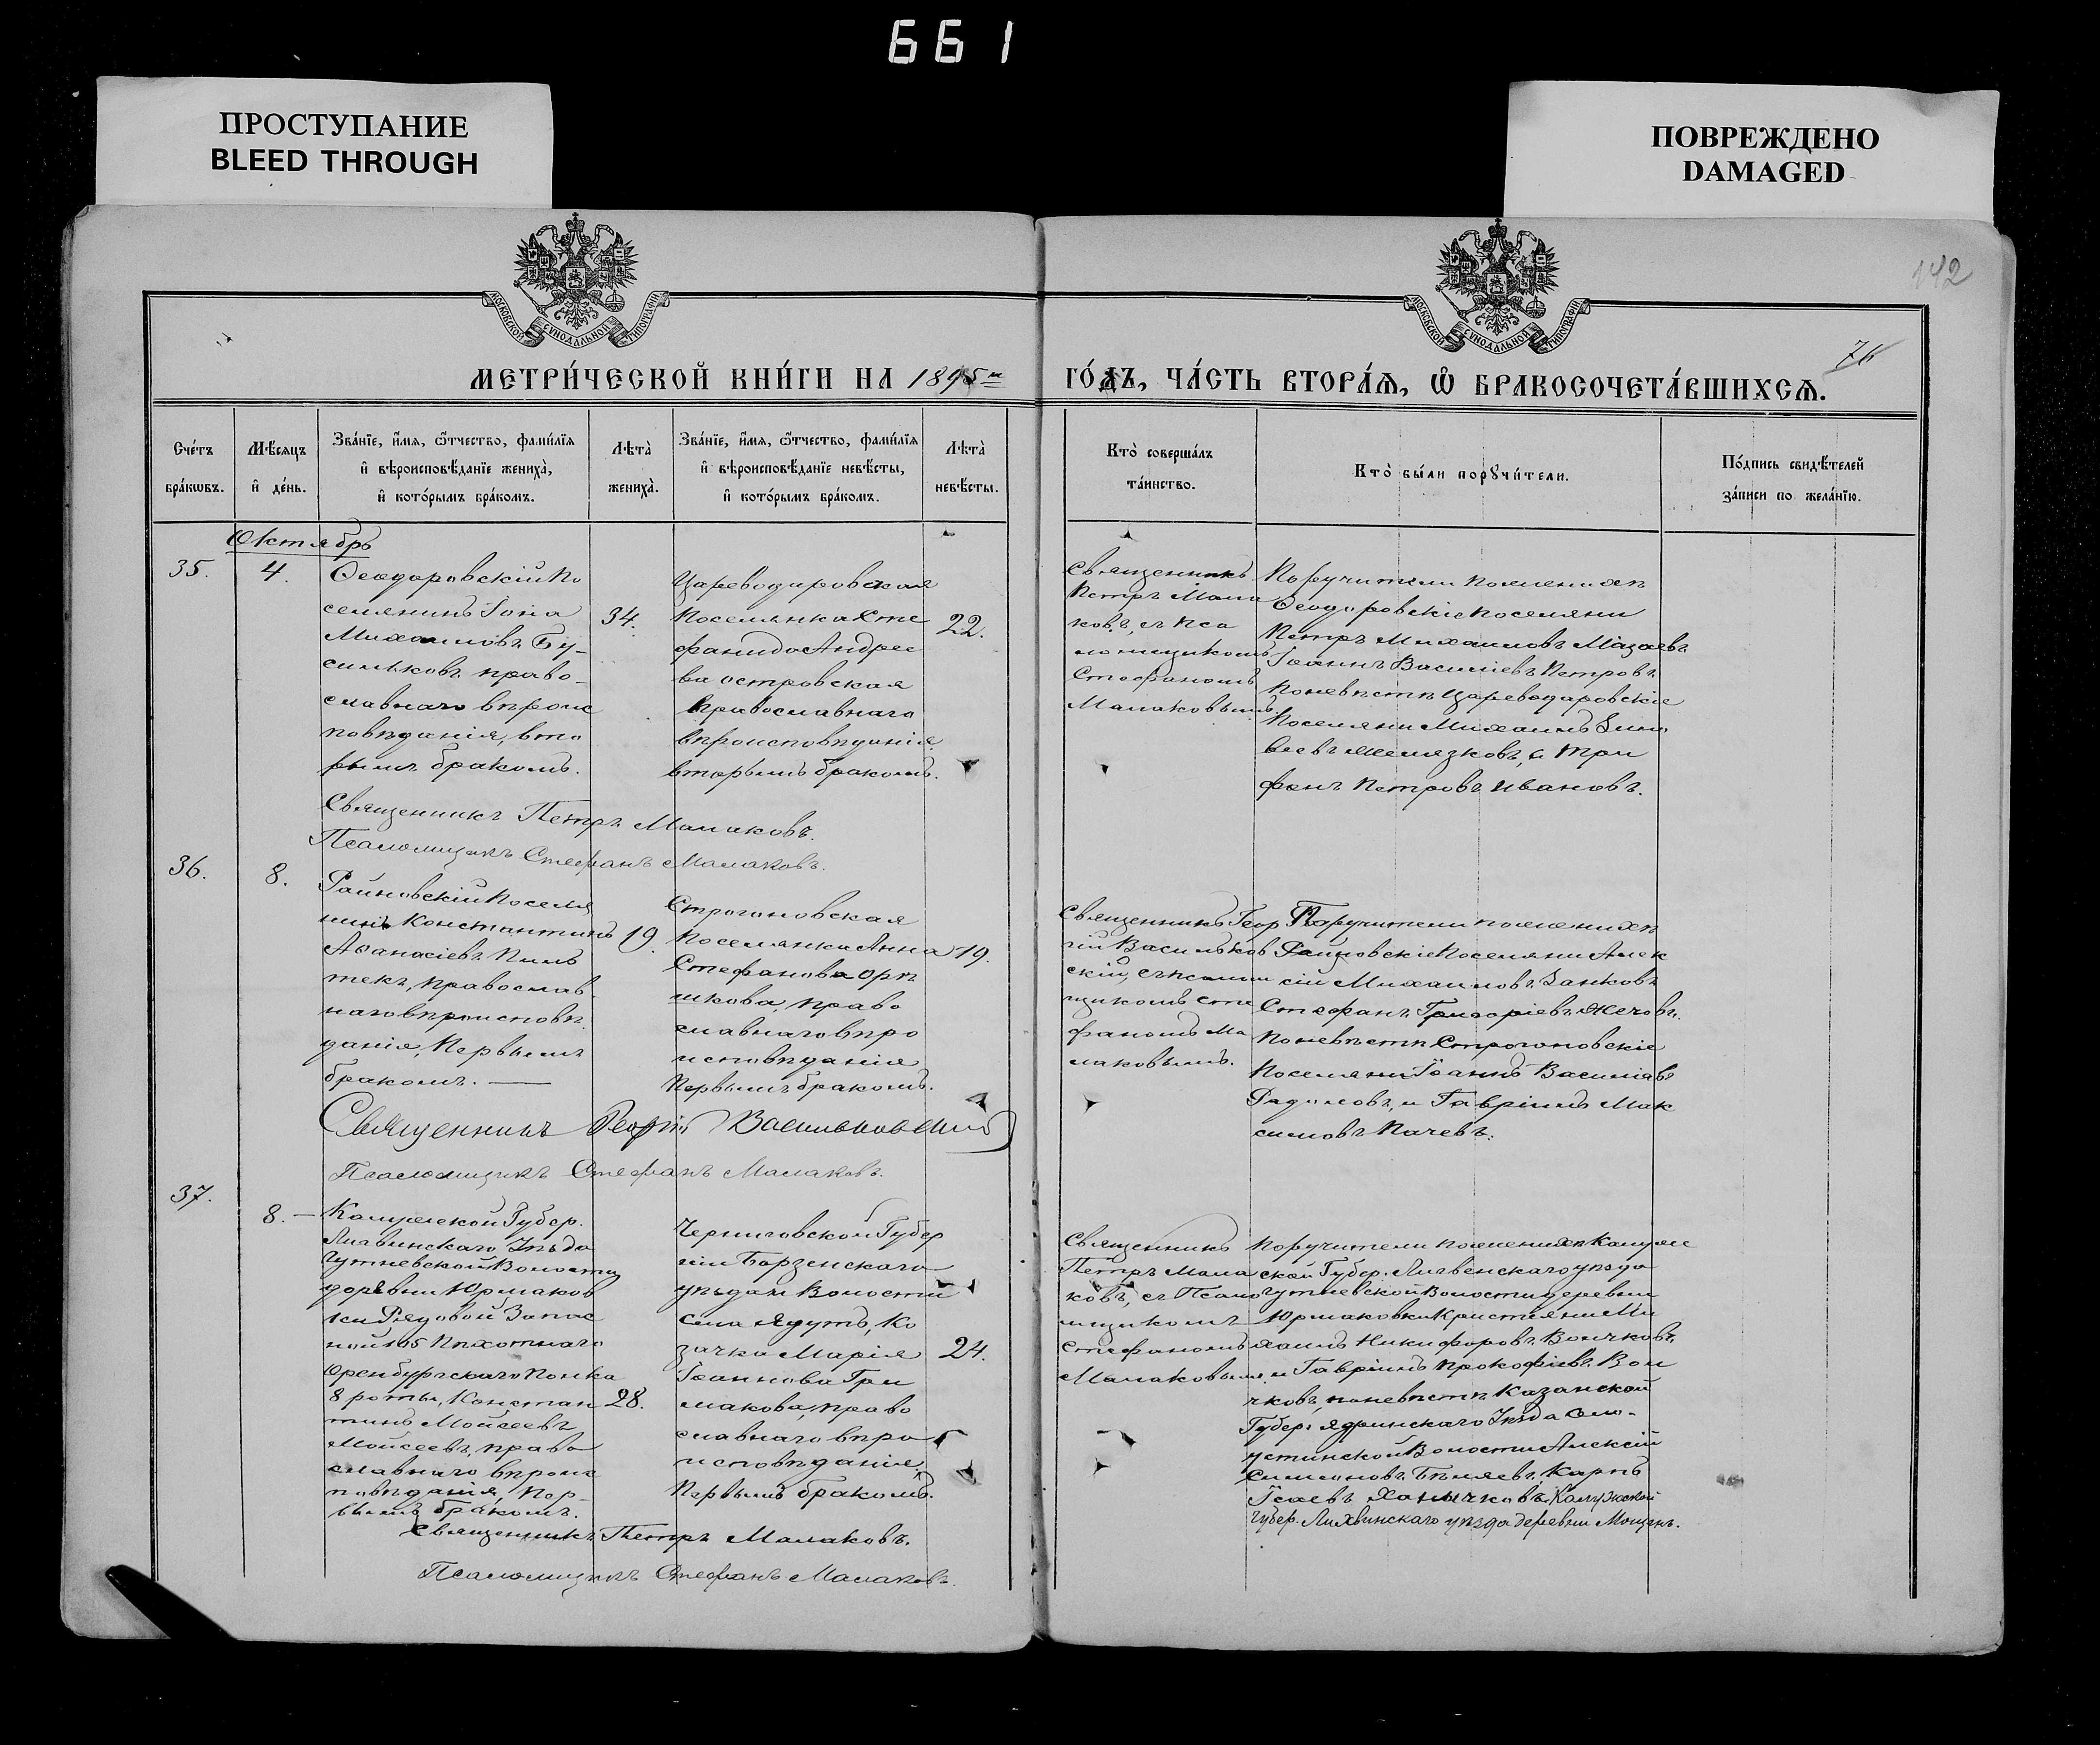 661
ПРОСТУПАНИЕ
BLEED THROUGH
ПОВРЕЖДЕНО
DAMAGED
МОСКОВСКОЙ СѴНОДАЛЬНОЙ ТИПОГРАФІИ
МОСКОВСКОЙ СѴНОДАЛЬНОЙ ТИПОГРАФІИ
142
76
МЕТРИ́ЧЕСКОЙ КНИ́ГИ НА 1895й
ГО́ДЪ, ЧА́СТЬ ВТОРА́Ѧ, Ѡ҆ БРАКОСОЧЕТА́ВШИХСѦ.
Сче́тъ
бра́кѡвъ.
Мѣ́сяцъ
и҆ де́нь.
Зва́нїе, и҆́мя, ѻ҆́тчество, фами́лїя
и҆ вѣроисповѣ́данїе жениха̀,
и҆ кото́рымъ бра́комъ.
Лѣта̀
жениха̀.
Зва́нїе, и҆́мя, ѻ҆́тчество, фами́лїя
и҆ вѣроисповѣ́данїе невѣ́сты,
и҆ кото́рымъ бра́комъ.
Лѣта̀
невѣ́сты.
Кто̀ соверша́лъ
та́инство.
Кто̀ бы́ли порꙋчи́тели.
По́дпись свидѣ́телей
за́писи по жела́нїю.
Октябрь
35.
4.
Ѳеодоровскій по
селянинъ Іона
Михаиловъ Бу-
сильковъ право-
славнаго вѣроис
повѣданія, вто
рымъ бракомъ.
34.
Цареводаровская
поселянка Сте
фанида Андрее
ва Островская
православнаго
вѣроисповѣданія
вторымъ бракомъ.
22.
Священникъ
Петръ Мала
ковъ, съ пса
ломщикомъ
Стефаномъ
Малаковымъ.
Поручители по женихѣ
Ѳеодоровскіе поселяни
Петръ Михаиловъ Мазаевъ
Іоаннъ Василіевъ Петровъ
по невѣстѣ Цареводаровскіе
поселяни Михаилъ Зино
веевъ Желязковъ, и Три
фонъ Петровъ Ивановъ.
Священникъ Петръ Малаковъ.
Псаломщикъ Стефанъ Малаковъ.
36.
8.
Райновскій поселя
нинъ Константинъ
Аѳанасіевъ
православ
наго вѣроисповѣ
данія, первымъ
бракомъ.
19.
Строгоновская
поселянка Анна
Стефанова Орѣ
шкова, право
славнаго вѣро
исповѣданія
первымъ бракомъ.
19.
Священникъ Геор
гій Васильков
скій, съ псалом
щикомъ Сте
фаномъ Ма
лаковымъ.
Поручители по женихѣ
Райновскіе поселяни Алек
сій Михаиловъ Занковъ
Стефанъ Григоріевъ Жечовъ.
по невѣстѣ Строгоновскіе
поселяни Іоаннъ Василіевъ
Радуловъ, и Гавріилъ Мак
симовъ Пачевъ.
Священникъ Георгій Васильковскій
Псаломщикъ Стефанъ Малаковъ.
37.
8.
Калужской Губер.
Лихвинскаго Уѣзда
волости
деревни Юрмаков
ки Рядовой запас
ной 105 пѣхотнаго
Оренбургскаго полка
8 роты, Констан
тинъ Мойсеевъ
Мойсеевъ, право
славнаго вѣроис
повѣданія, пер-
вымъ бракомъ.
28.
Черниговской Губер
ніи Борзенскаго
уѣзда и волости
села Ядутъ, ко
зачка Марія
Іоаннова Гри
макова, право
славнаго вѣро
исповѣданія,
первымъ бракомъ.
24.
Священникъ
Петръ Мала
ковъ, съ Псало
мщикомъ
Стефаномъ
Малаковымъ.
Поручители по женихѣ Калуж
ской Губер. Лихвенскаго уѣзда
волости деревни
Юрмаковки крестьяни Ми
хаилъ Никифоровъ Волчковъ
и Гавріилъ Прокофіевъ Вол
чковъ, по невѣстѣ Казанской
Губер. Ядринскаго Уѣзда
волости Алексій
Симеоновъ Бѣляевъ, Карпъ
Исаевъ Калужской
Губер. Лихвинскаго уѣзда деревни
Священникъ Петръ Малаковъ.
Псаломщикъ Стефанъ Малаковъ.